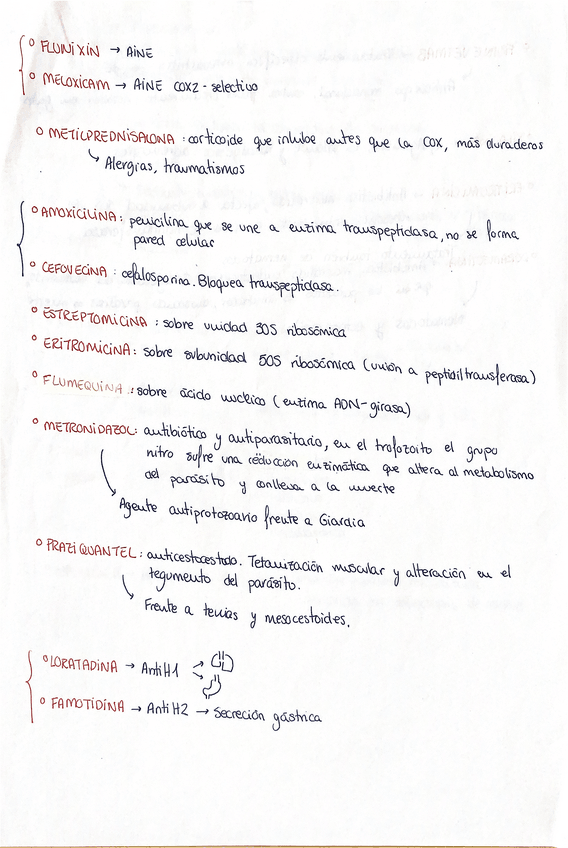 ° FLUNIXIN → AINE
° MELOXICAM → AINE COX2 - selectivo
° METILPREDNISALONA : corticoide que inhibe antes que la COX, más duraderos
↳ Alergias, traumatismos
° AMOXICILINA: penicilina que se une a enzima transpeptidasa, no se forma
pared celular
° CEFOVECINA : cefalosporina. Bloquea transpeptidasa.
° ESTREPTOMICINA : sobre unidad 30S ribosómica
° ERITROMICINA: sobre subunidad 50S ribosómica (unión a peptidiltransferasa)
° FLUMEQUINA : sobre ácido nucleico (enzima ADN-girasa)
° METRONIDAZOL: antibiótico y antiparasitario, en el trofozoito el grupo
nitro sufre una reducción enzimática que altera al metabolismo
del parásito y conlleva a la muerte
↳ Agente antiprotozoario frente a Giardia
° PRAZIQUANTEL: anticestocestodo. Tetanización muscular y alteración en el
tegumento del parásito.
↳ Frente a tenias y mesocestoides.
° LORATADINA → Anti H1
° FAMOTIDINA → Anti H2 → Secreción gástrica